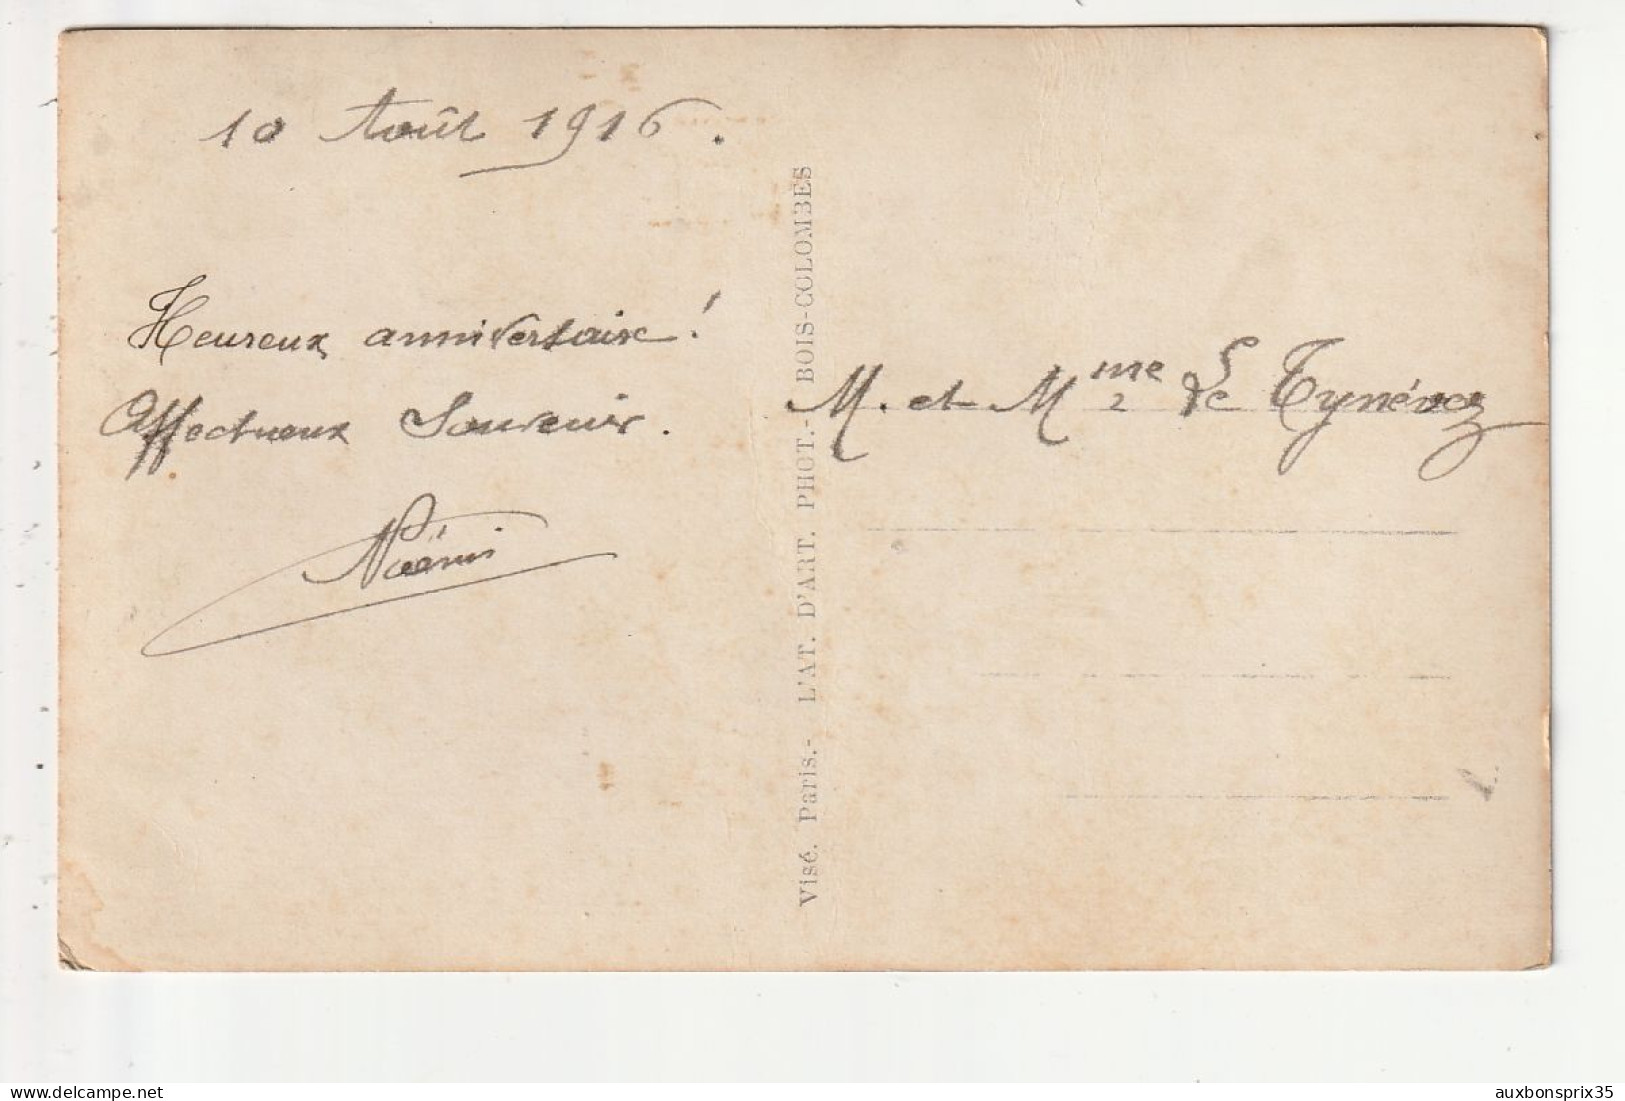 10 Août 1916.
Heureux anniversaire!
Affectueux Souvenir.
Noémi
M. et Mme Le Tynévez
Visé. Paris.- L'AT. D'ART. PHOT.- BOIS-COLOMBES
auxbonsprix35